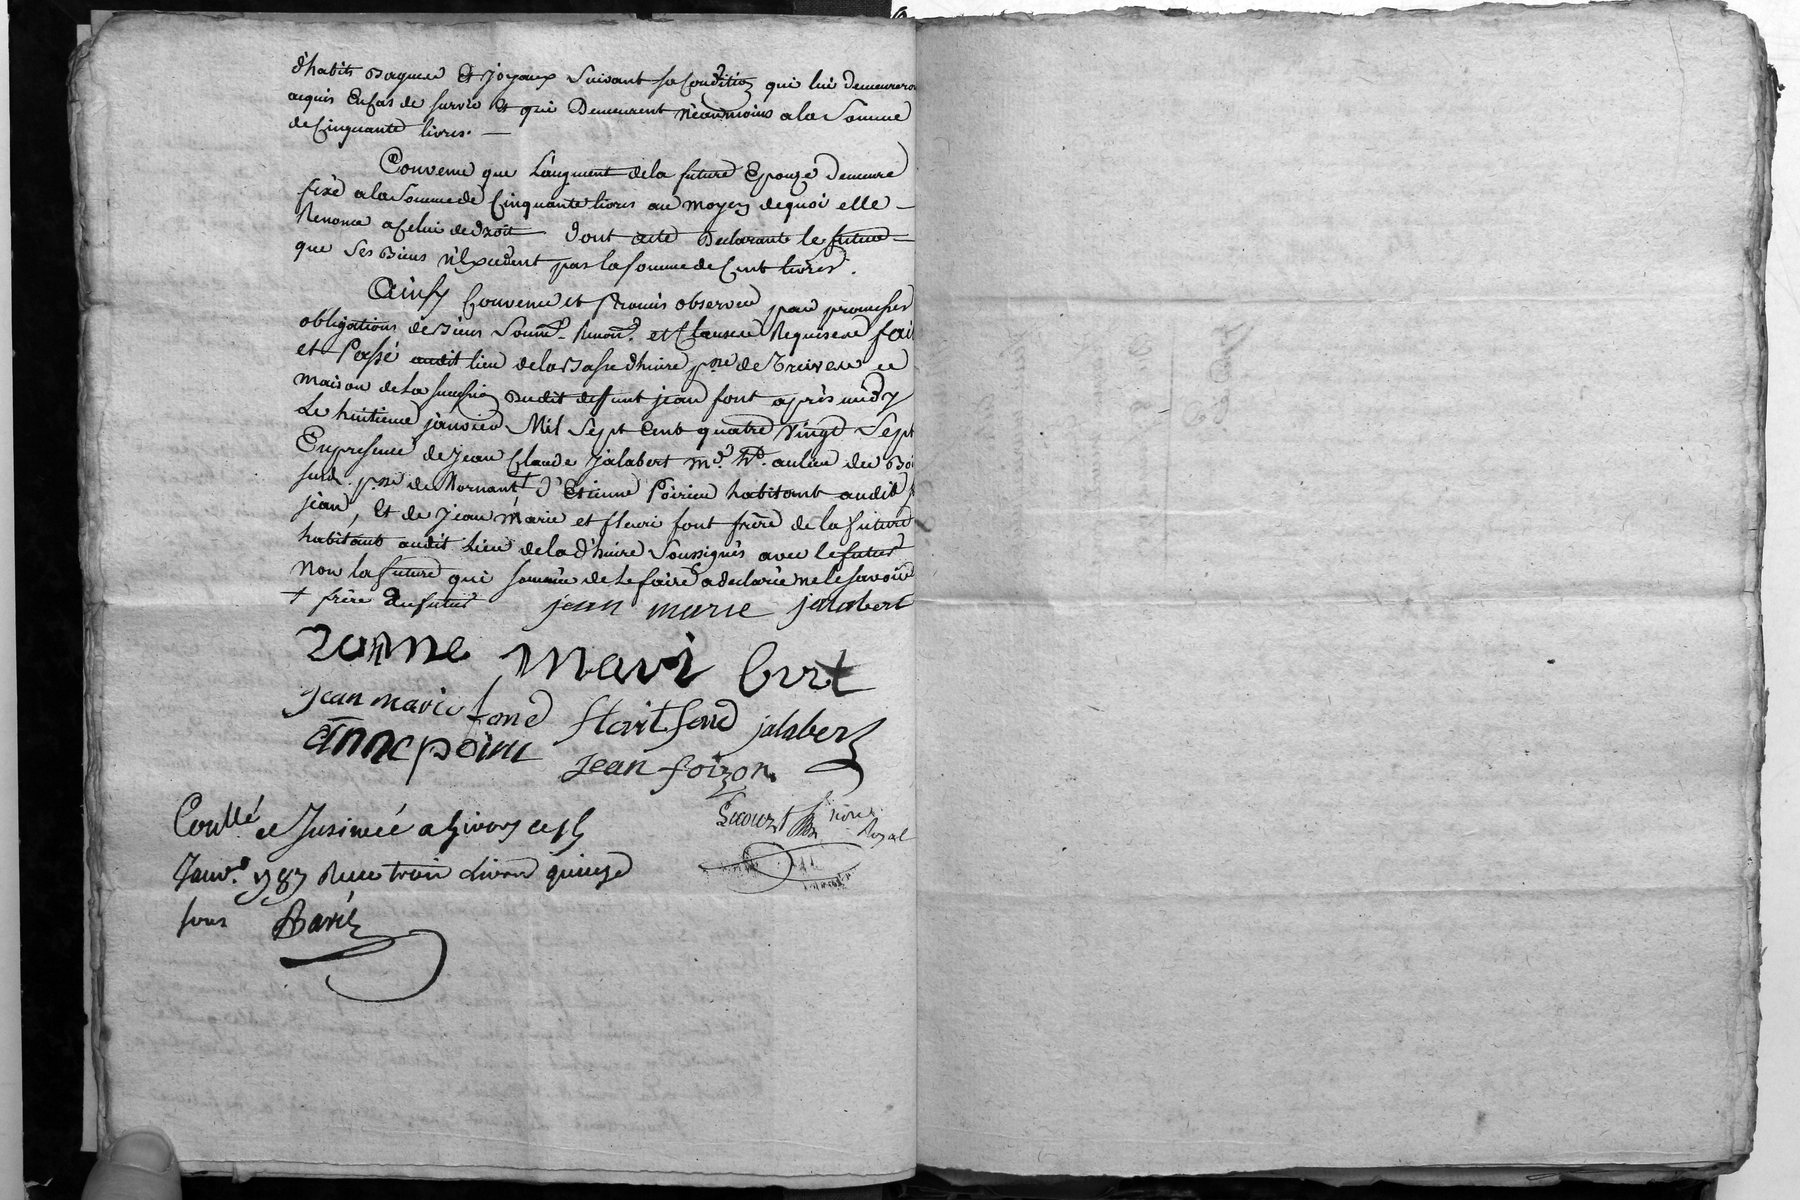 d'habits Bagues Et joyaux suivant sa Condition qui lui demeureron
acquis En Cas de survie et qui Demeurent néanmoins a la Somme
de Cinquante livres. —
Convenu que L'augment de la future Epouze demeure
fixé a la Somme de Cinquante livres au moyen de quoi elle —
Renonce a Celui de droit dont acte Declarants le futur —
que Ses Biens n'Excedent pas la somme de Cent livres.
Ainsy Convenu et Promis observer par promesses
obligations de Biens Soum.ns Renon.ns et Clauses Requises fai
et Passé audit lieu de la Basse dhuire p.sse de Treives en
maison de la succession dudit deffunt jean font après midy
Le huitieme janvier Mil Sept Cent quatre Vingt Sept
En presence de jean Claude Jalabert m.d h.t au lieu du Bo
p.sse de Mornant + d'Etienne Poirieu habitant audit
jean, Et de jean Marie et fleuri font frère de la future
habitants audit Lieu de la d'huire Soussignés avec le futur
Non la future qui sommée de Le faire a declarée ne le savoir
+ frère du futur jean marie jalabert
jean marie fond fleurit fond jalabert
jean foizon
Con.llé et Insinué a Givors ce
Janv.r 1787 Recu trois Livres quinze
sous
Royal